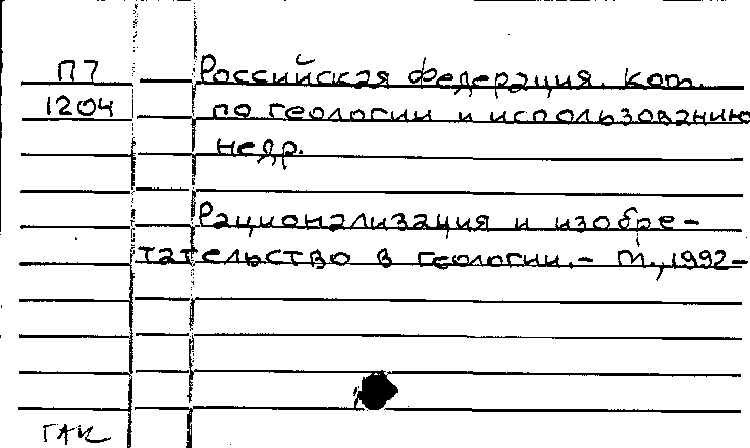 П7 Российская Федерация. Ком.
1204 по геологии и использованию
недр.
Рационализация и изобре-
тательство в геологии.- М.,1992-
ГАК